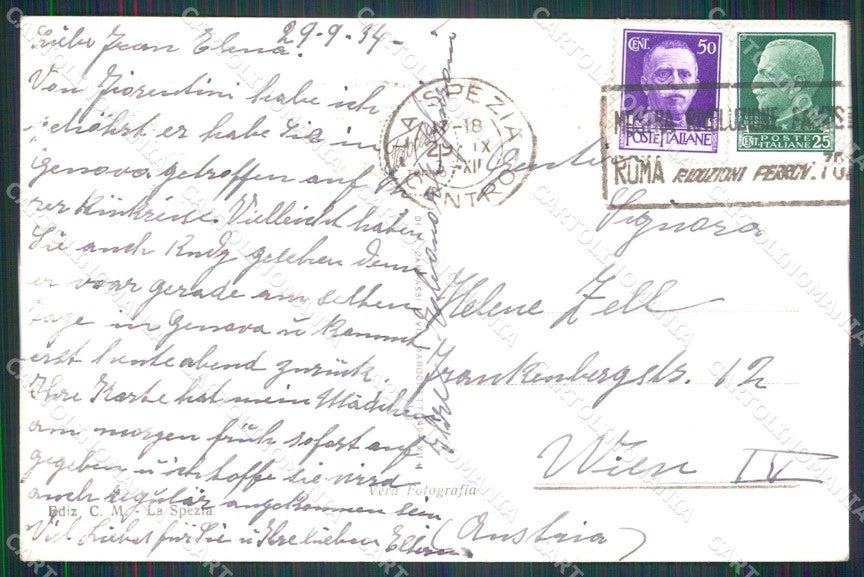 29-9-34-
Liebe Frau Elena.
Von Fiorentini habe ich
gehöhrt er habe Sie in
Genova getroffen auf
rer Rückreise. Vielleicht haben
Sie auch Rudy gesehen denn
er war gerade am selben
tage in Genova u kommt
erst heute abend zurück.
Ihre Karte hat mein Mädchen
am morgen früh sofort auf
gegeben u ich hoffe sie wird
auch regulär angekommen sein
Viel Liebes für Sie u Ihre lieben Eltern
Ihre
Ediz. C. M. - La Spezia
Vera Fotografia
LA SPEZIA
CENTRO
18
IX
XII
CENT. 50
POSTE ITALIANE
POSTE ITALIANE
CENT. 25
MOSTRA RIVOLUZIONE FASCIS
ROMA RIDUZIONI FERROV. 70
Gentile
Signora
Helene Zell
Frankenbergstr. 12
Wien IV
(Austria)
CARTOLINOMANIA